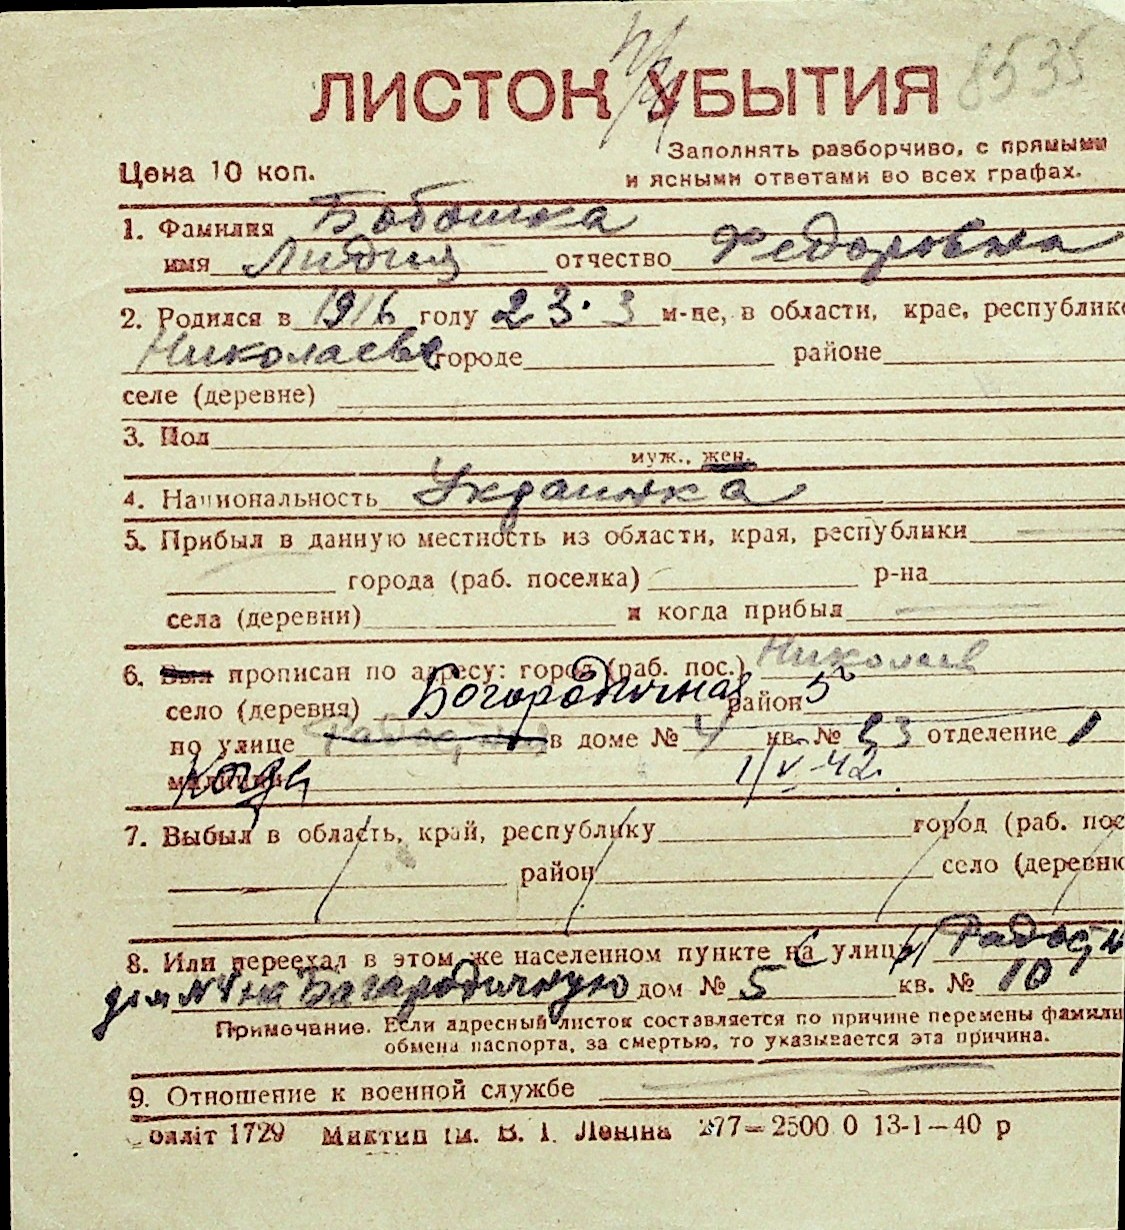 8535
ЛИСТОК УБЫТИЯ
Заполнять разборчиво, с прямыми
Цена 10 коп.
и ясными ответами во всех графах.
1. Фамилия Бабошка
имя Лидия отчество Федоровна
2. Родился в 1916 году 23.3 м-це, в области, крае, республике
Николаеве городе районе
селе (деревне)
3. Пол
муж., жен.
4. Национальность Украинка
5. Прибыл в данную местность из области, края, республики
города (раб. поселка) р-на
села (деревни) и когда прибыл
6. Был прописан по адресу: город (раб. пос.) Николаев
село (деревня) Богородичная район 5
по улице в доме № 4 кв. № 53 отделение 1
милиции Когда 1/V-42.
7. Выбыл в область, край, республику город (раб. пос
район село (деревню
8. Или переехал в этом же населенном пункте на с улицы
дом №4 на Багародичную дом № 5 кв. № 10
Примечание. Если адресный листок составляется по причине перемены фамилии
обмена паспорта, за смертью, то указывается эта причина.
9. Отношение к военной службе
1729 Миктип ім. В. І. Леніна 277—2500 0 13-1—40 р